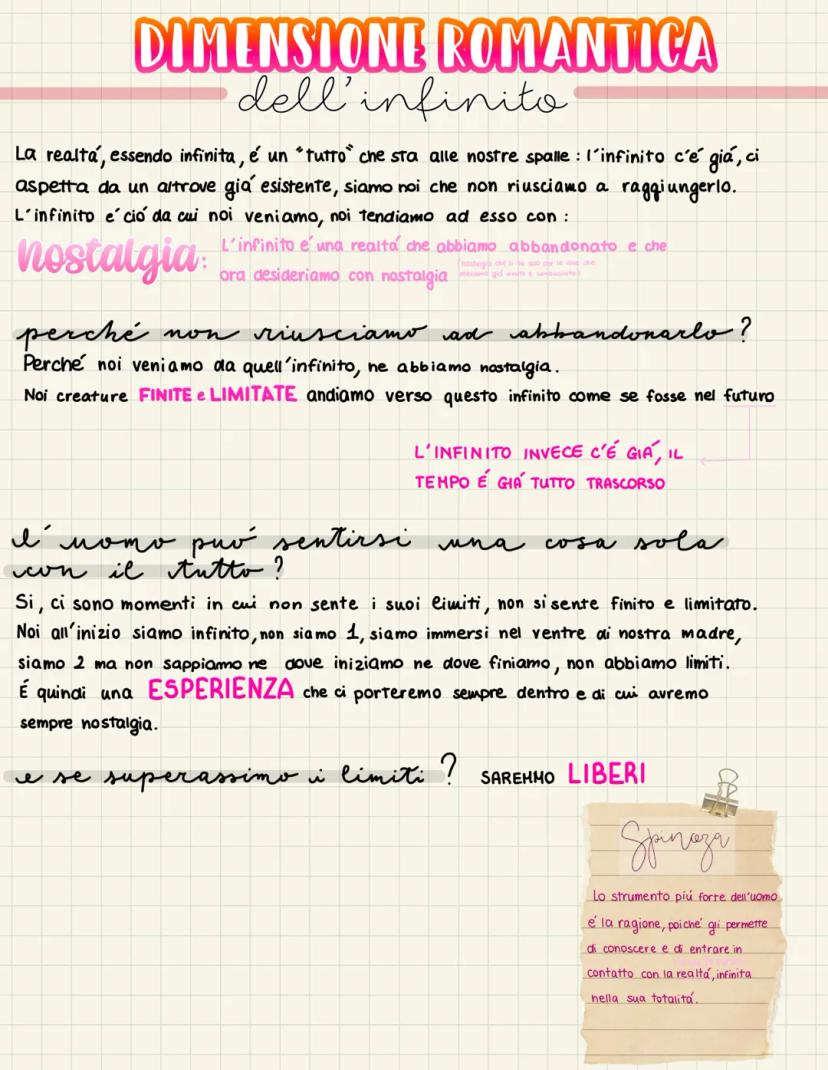 DIMENSIONE ROMANTICA
dell'infinito
La realtá, essendo infinita, é un "tutto" che sta alle nostre spalle : l'infinito c'é giá, ci
aspetta da un altrove giá esistente, siamo noi che non riusciamo a raggiungerlo.
L'infinito é ció da cui noi veniamo, noi tendiamo ad esso con :
nostalgia: L'infinito é una realtá che abbiamo abbandonato e che
ora desideriamo con nostalgia
perché non riusciamo ad abbandonarlo?
Perché noi veniamo da quell'infinito, ne abbiamo nostalgia.
Noi creature FINITE e LIMITATE andiamo verso questo infinito come se fosse nel futuro
L'INFINITO INVECE C'É GIÁ, IL
TEMPO É GIÁ TUTTO TRASCORSO
l'uomo puó sentirsi una cosa sola
con il tutto?
Si, ci sono momenti in cui non sente i suoi limiti, non si sente finito e limitato.
Noi all'inizio siamo infinito, non siamo 1, siamo immersi nel ventre di nostra madre,
siamo 2 ma non sappiamo ne dove iniziamo ne dove finiamo, non abbiamo limiti.
É quindi una ESPERIENZA che ci porteremo sempre dentro e di cui avremo
sempre nostalgia.
e se superassimo i limiti? SAREMMO LIBERI
Spinoza
Lo strumento piú forte dell'uomo
é la ragione, poiché gli permette
di conoscere e di entrare in
contatto con la realtá, infinita
nella sua totalitá.